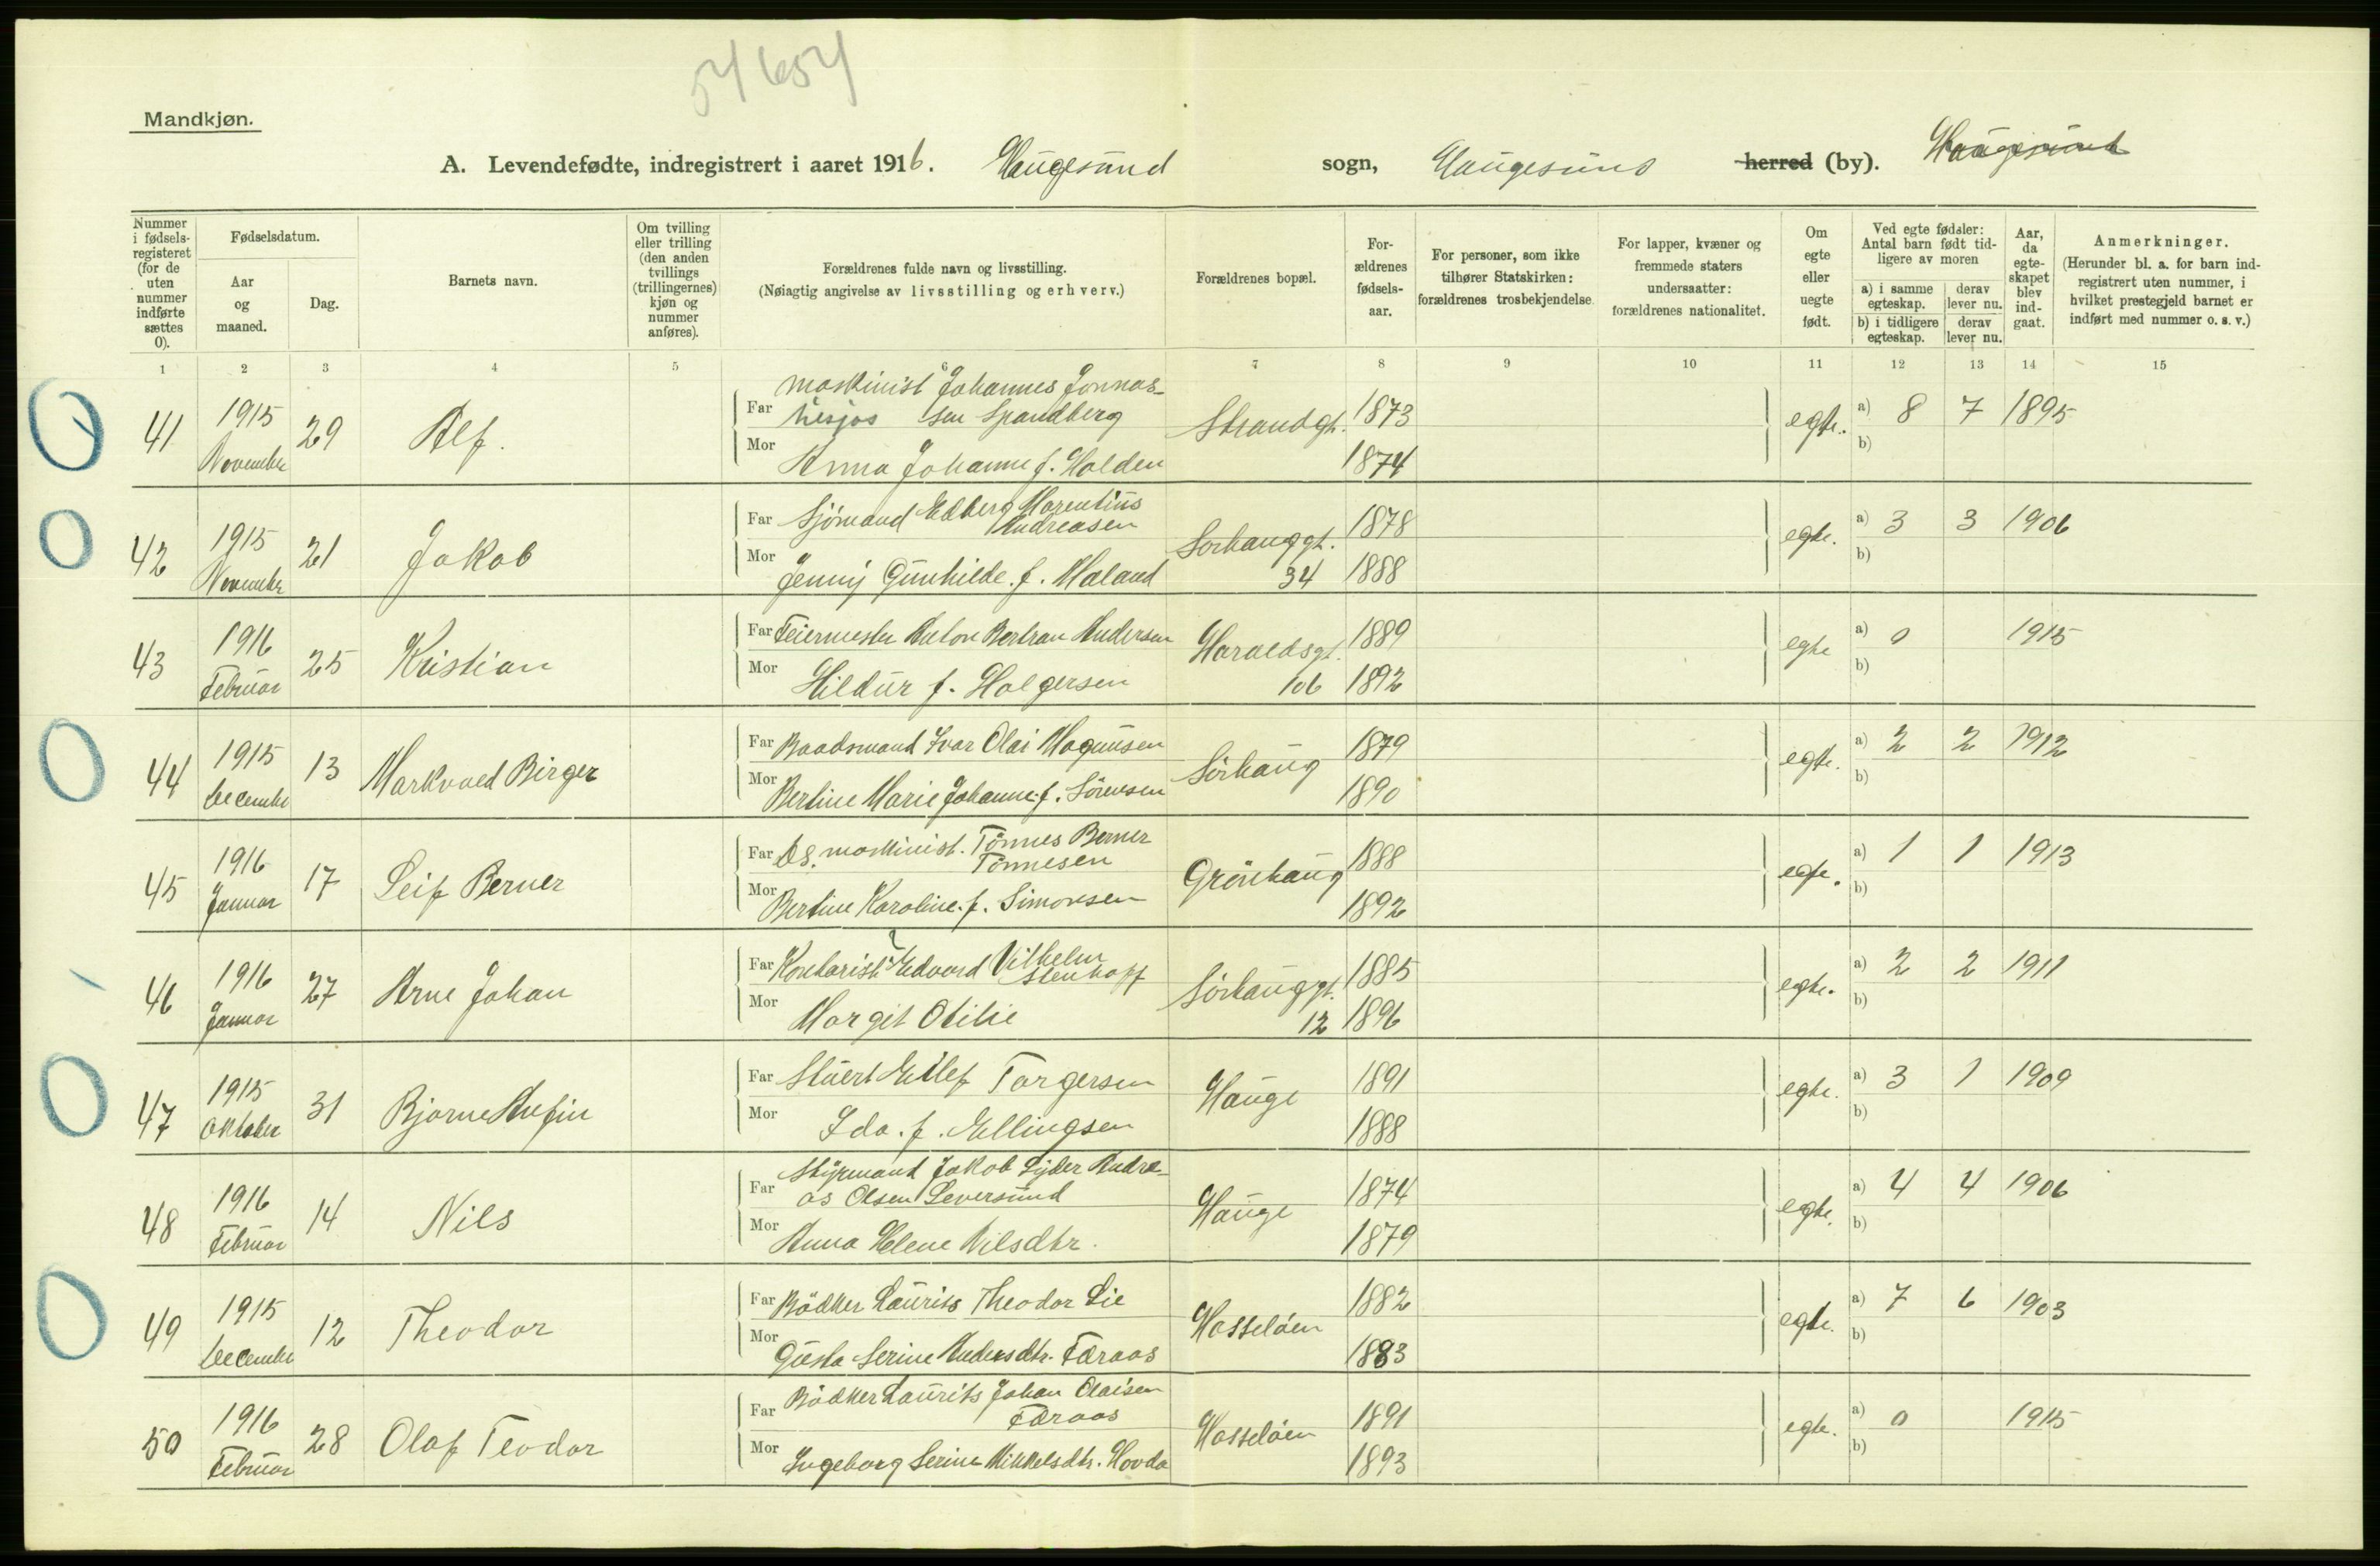 54654
Mandkjøn.
A. Levendefødte, indregistrert i aaret 1916. Haugesund sogn, Haugesund herred (by). Haugesund
Nummer i fødsels-registeret (for de uten nummer indførte sættes 0).
Fødselsdatum.
Aar og maaned.
Dag.
Barnets navn.
Om tvilling eller trilling (den anden tvillings (trillingernes) kjøn og nummer anføres).
Forældrenes fulde navn og livsstilling.
(Nøiagtig angivelse av livsstilling og erhverv.)
Forældrenes bopæl.
For-ældrenes fødsels-aar.
For personer, som ikke tilhører Statskirken: forældrenes trosbekjendelse.
For lapper, kvæner og fremmede staters undersaatter: forældrenes nationalitet.
Om egte eller uegte født.
Ved egte fødsler: Antal barn født tid-ligere av moren
a) i samme egteskap. derav lever nu.
b) i tidligere egteskap. derav lever nu.
Aar, da egte-skapet blev ind-gaat.
Anmerkninger.
(Herunder bl. a. for barn ind-registrert uten nummer, i hvilket prestegjeld barnet er indført med nummer o. s. v.)
1 2 3 4 5 6 7 8 9 10 11 12 13 14 15
41 1915 November 29 Alf.
Far maskinist Johannes Jonnas-
sen Spandberg
Mor Anna Johanne f. Holden
Strandgt. 1873 1874 egte. a) 8 7 1895
b)
42 1915 November 21 Jakob
Far Sjömand Edberg Marentius
Andreasen
Mor Jenny Gunhilde. f. Haland
Sorhauggt. 34 1878 1888 egte. a) 3 3 1906
b)
43 1916 Februar 25 Kristian
Far Feiermester Anton Bertran Andersen
Mor Hildur f. Holgersen
Haraldsgt. 106 1889 1892 egte a) 0 1915
b)
44 1915 December 13 Markvald Birger
Far Baadsmand Ivar Olai Magnusen
Mor Bertine Marie Johanne. f. Sörensen
Sörhaug 1879 1890 egte. a) 2 2 1912
b)
45 1916 Januar 17 Leif Berner
Far Ds. maskinist. Tönnes Berner
Tönnesen
Mor Bertine Karoline. f. Simonsen
Grönhaug 1888 1892 egte. a) 1 1 1913
b)
46 1916 Januar 27 Arne Johan
Far Kontorist Edvard Vilhelm
Stenhoff
Mor Margit Otilie
Sörhauggt. 12 1885 1896 egte. a) 2 2 1911
b)
47 1915 Oktober 31 Bjarne Anfin
Far Stuert Eilef Torgersen
Mor Ida. f. Ellingsen
Hauge 1891 1888 egte. a) 3 1 1909
b)
48 1916 Februar 14 Nils
Far Styrmand Jakob Lyder Andre-
as Olsen Leversund
Mor Anna Helene Nilsdtr.
Hauge 1874 1879 egte. a) 4 4 1906
b)
49 1915 December 12 Theodor
Far Bödker Laurits Theodor Lie
Mor Gusta Serine Andersdtr. Færaas
Hasselöen 1882 1883 egte. a) 7 6 1903
b)
50 1916 Februar 28 Olaf Teodor
Far Bödker Laurits Johan Olaisen
Færaas
Mor Ingeborg Serine Mikkelsdtr. Hovda
Hasselöen 1891 1893 egte. a) 0 1915
b)